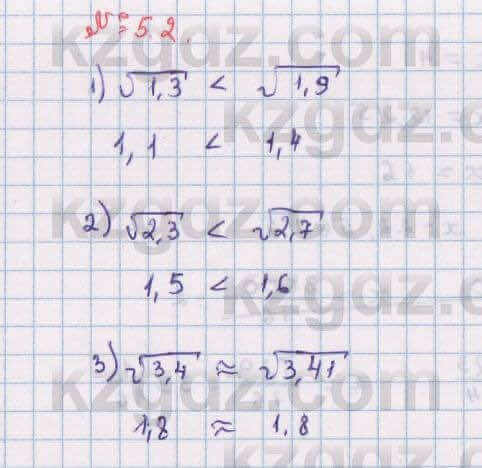 № 5.2.
1) √1,3 < √1,9
1,1 < 1,4
2) √2,3 < √2,7
1,5 < 1,6
3) √3,4 ≈ √3,41
1,8 ≈ 1.8
kzgdz.com
kzgdz.com
kzgdz.com
kzgdz.com
kzgdz.com
kzgdz.com